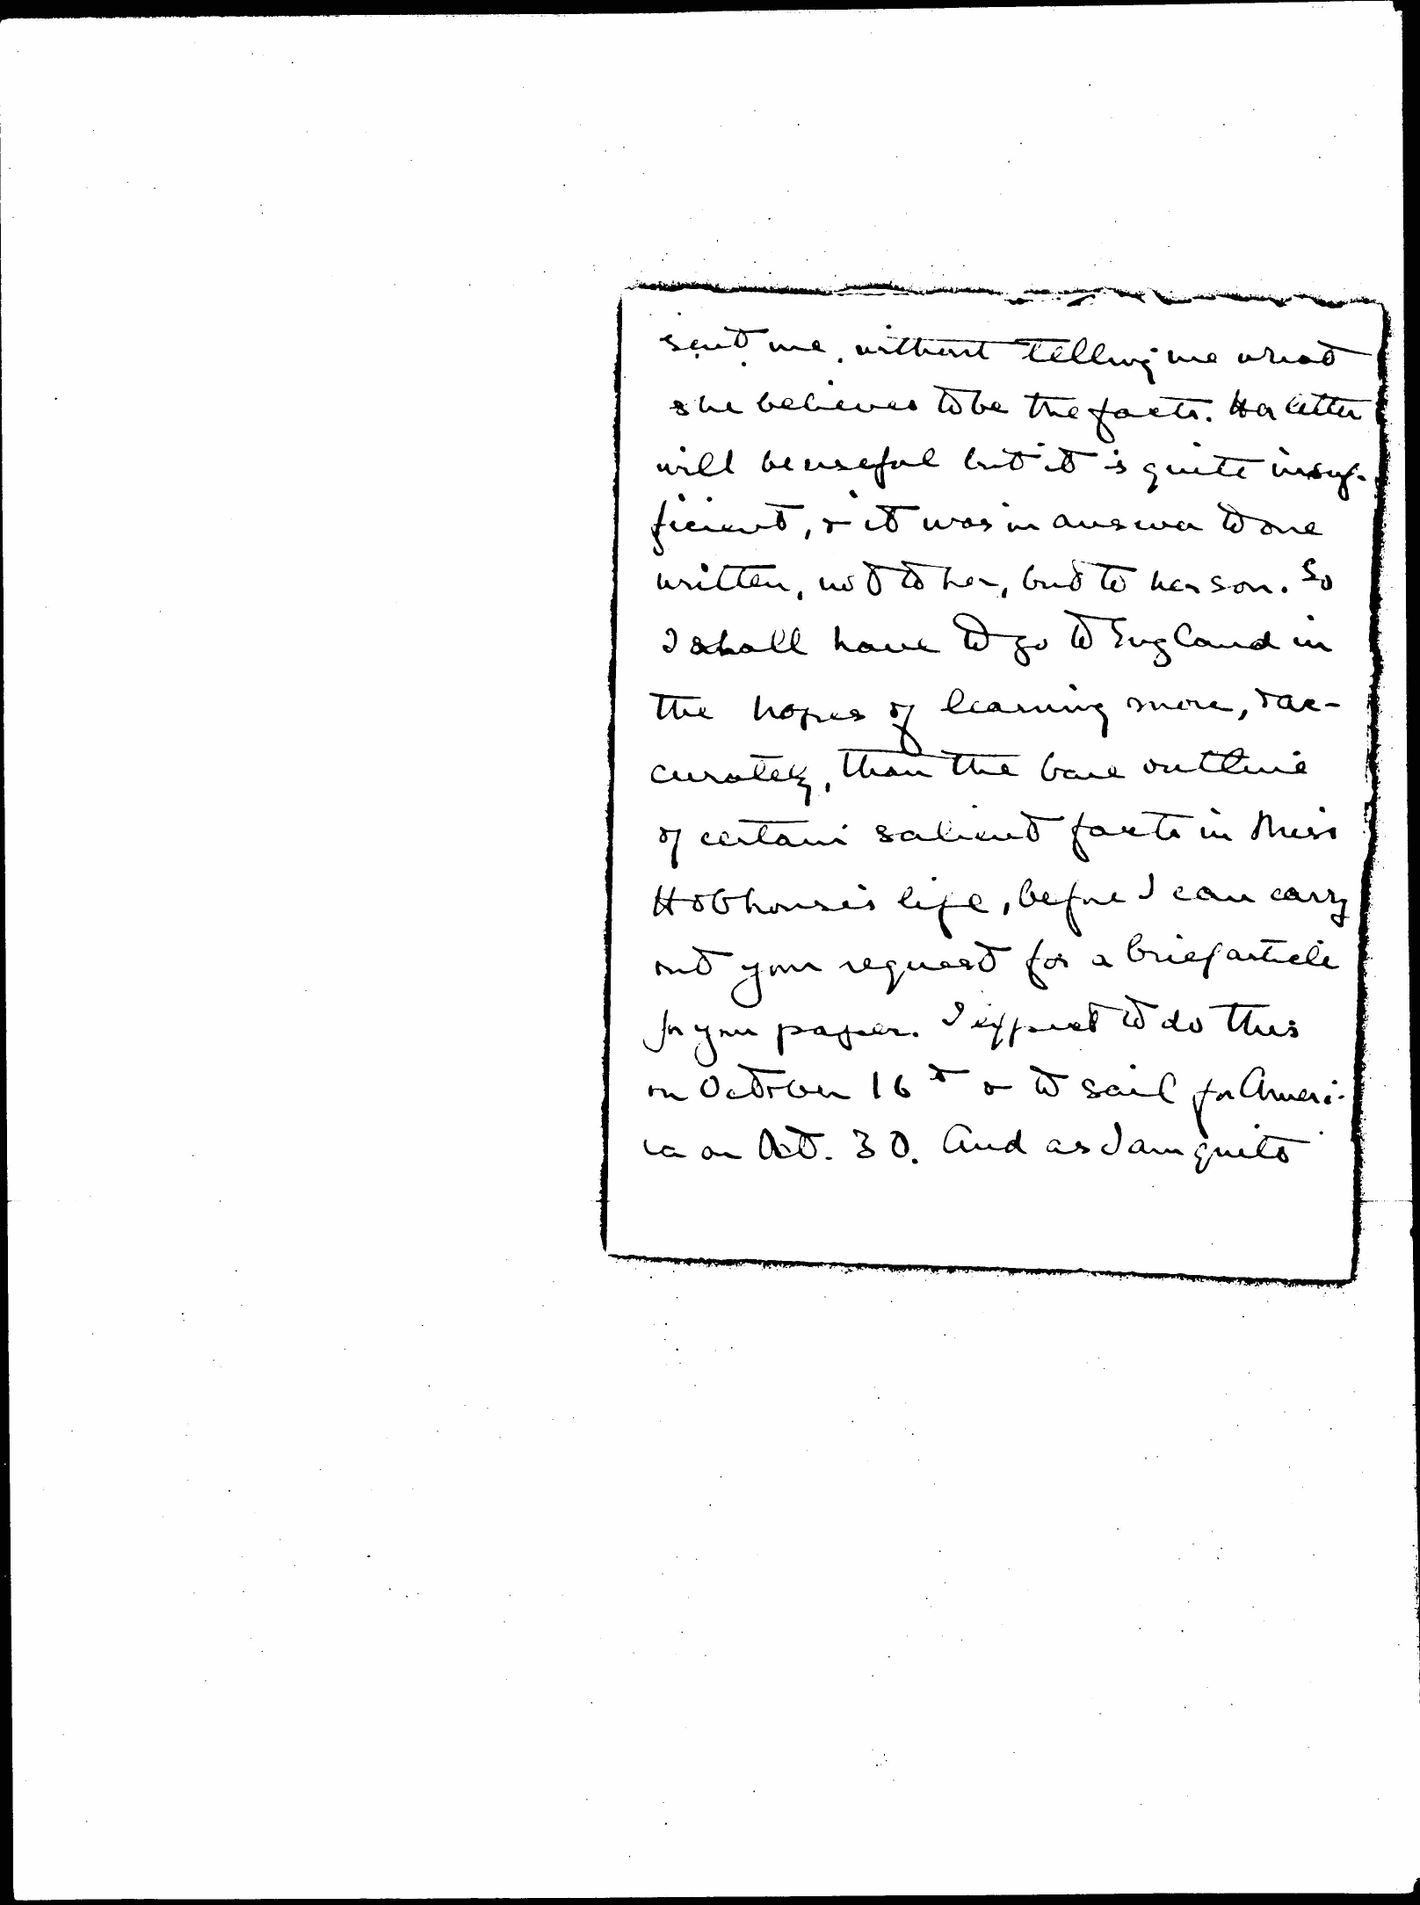 sent me, without telling me what
she believes to be the facts. Her letter
will be useful but it is quite insuf-
ficient, & it was in answer to one
written, not to her, but to her son. So
I shall have to go to England in
the hopes of learning more, & ac-
curately, than the bare outline
of certain salient facts in Miss
Hobhouse's life, before I can carry
out your request for a brief article
for your paper. I expect to do this
on October 16th & to sail for Ameri-
ca on Oct. 30. And as I am quite